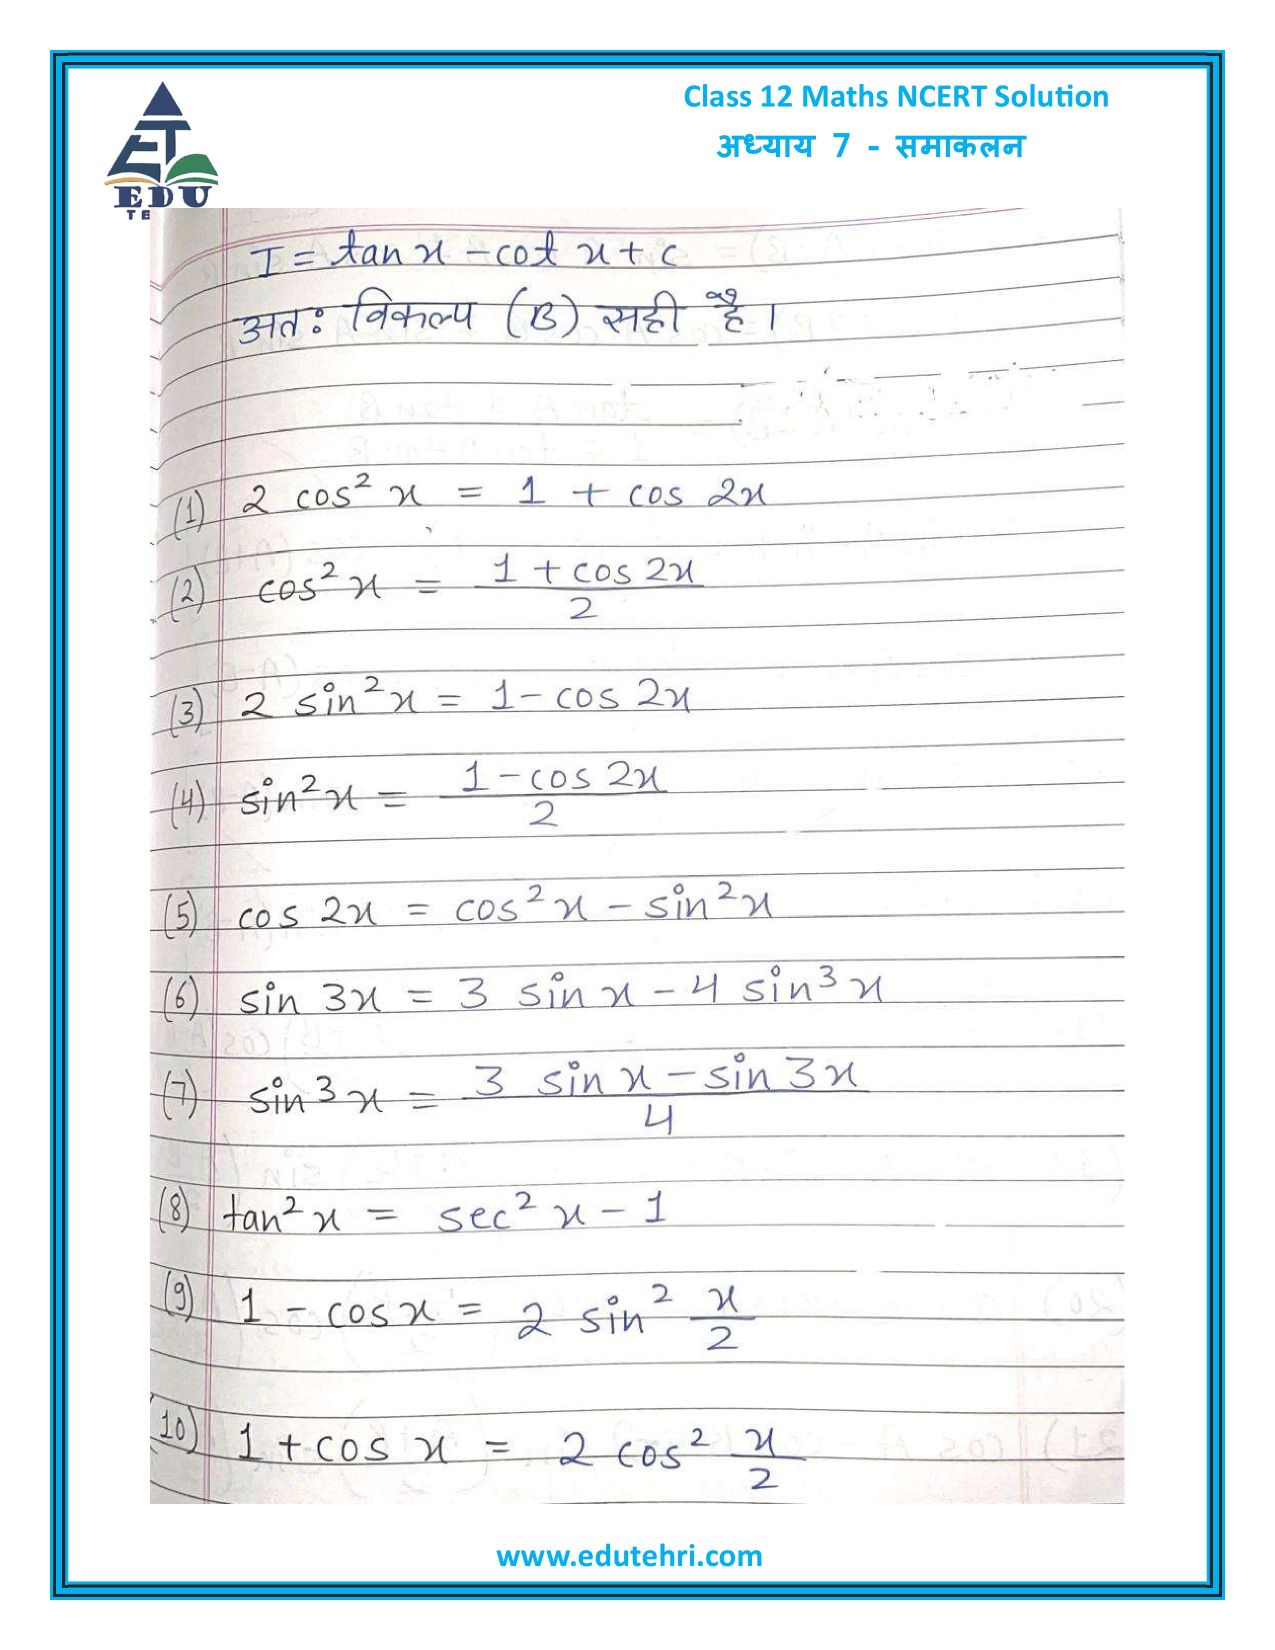 Class 12 Maths NCERT Solution
अध्याय 7 - समाकलन
ET
EDU
TE
I = tan x - cot x + c
अतः विकल्प (B) सही है।
(1) 2 cos² x = 1 + cos 2x
(2) cos² x = (1 + cos 2x)/2
(3) 2 sin² x = 1 - cos 2x
(4) sin² x = (1 - cos 2x)/2
(5) cos 2x = cos² x - sin² x
(6) sin 3x = 3 sin x - 4 sin³ x
(7) sin³ x = (3 sin x - sin 3x)/4
(8) tan² x = sec² x - 1
(9) 1 - cos x = 2 sin² x/2
(10) 1 + cos x = 2 cos² x/2
www.edutehri.com